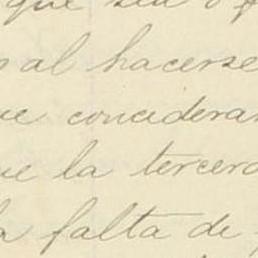 que sea o
al hacerse
ue conciderar
ue la tercera
la falta de